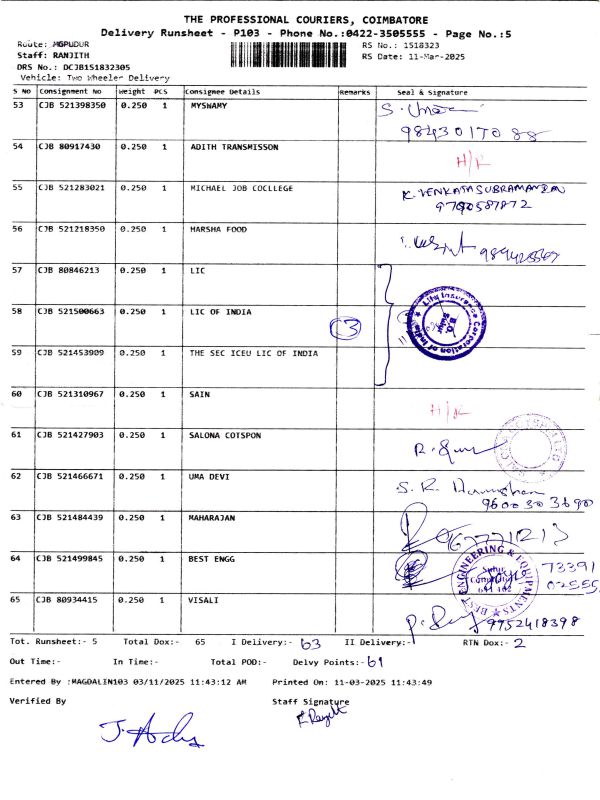 THE PROFESSIONAL COURIERS, COIMBATORE
Delivery Runsheet - P103 - Phone No.:0422-3505555 - Page No.:5
Route: MGPUDUR
Staff: RANJITH
DRS No.: DCJB151832305
Vehicle: Two Wheeler Delivery
RS No.: 1518323
RS Date: 11-Mar-2025
S No Consignment No Weight PCS Consignee Details Remarks Seal & Signature
53 CJB 521398350 0.250 1 MYSWAMY
54 CJB 80917430 0.250 1 ADITH TRANSMISSON H/K
55 CJB 521283021 0.250 1 MICHAEL JOB COCLLEGE K. VENKATASUBRAMANIAN
56 CJB 521218350 0.250 1 HARSHA FOOD
57 CJB 80846213 0.250 1 LIC
58 CJB 521500663 0.250 1 LIC OF INDIA
59 CJB 521453909 0.250 1 THE SEC ICEU LIC OF INDIA
60 CJB 521310967 0.250 1 SAIN H/K
61 CJB 521427903 0.250 1 SALONA COTSPON
62 CJB 521466671 0.250 1 UMA DEVI S. R.
9600303690
63 CJB 521484439 0.250 1 MAHARAJAN
64 CJB 521499845 0.250 1 BEST ENGG BEST ENGINEERING & EQUIPMENTS 73391
65 CJB 80934415 0.250 1 VISALI 9952418398
Tot. Runsheet:- 5 Total Dox:- 65 I Delivery:- 63 II Delivery:- RTN Dox:- 2
Out Time:- In Time:- Total POD:- Delvy Points:- 61
Entered By :MAGDALIN103 03/11/2025 11:43:12 AM Printed On: 11-03-2025 11:43:49
Verified By Staff Signature